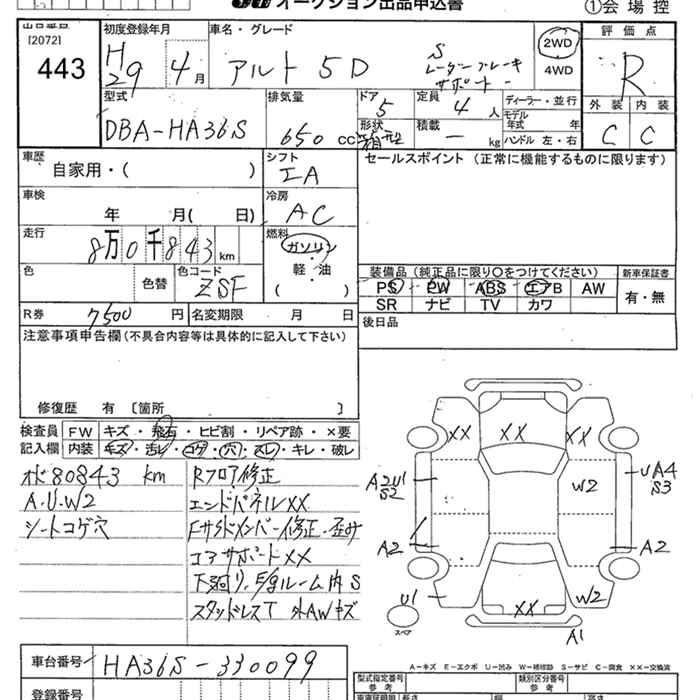 オークション出品申込書
①会場控
出品番号
[2072]
443
初度登録年月
H29 4月
車名・グレード
アルト 5D
S
レーダーブレーキ
サポート
2WD
4WD
評価点
R
外装 内装
C C
型式
DBA-HA36S
排気量
650 cc
ドア
5
形状
箱型
定員
4 人
積載
— kg
ディーラー・並行
モデル年式 年
ハンドル 左・右
車歴
自家用・( )
シフト
IA
車検
年 月( 日)
冷房
AC
走行
8万0千843km
燃料
ガソリン
・
軽・油
( )
色
色替
色コード
ZSF
セールスポイント(正常に機能するものに限ります)
装備品(純正品に限り○をつけてください)
PS PW ABS エアB AW
SR ナビ TV カワ
新車保証書
有・無
後日品
R券 7500円
名変期限 月 日
注意事項申告欄(不具合内容等は具体的に記入して下さい)
修復歴 有 〔箇所 〕
検査員記入欄
FW キズ・飛石・ヒビ割・リペア跡・×要
内装 キズ・汚レ・コゲ・穴・スレ・キレ・破レ
オド80843 km
A.U.W2
シートコゲ穴
Rフロア修正
エンドパネルXX
Fサイドメンバー修正・歪み
コアサポートXX
下廻り、E/gルーム内S
スタッドレスT 外AWキズ
XX XX XX
A2U1
S2
UA4
S3
W2
A2
A2
U1
スペア
XX
W2
A1
A-キズ E-エクボ U-凹み W-補修跡 S-サビ C-腐食 XX-交換済
車台番号
HA36S-330099
登録番号
型式指定番号
参考
類別区分番号
参考